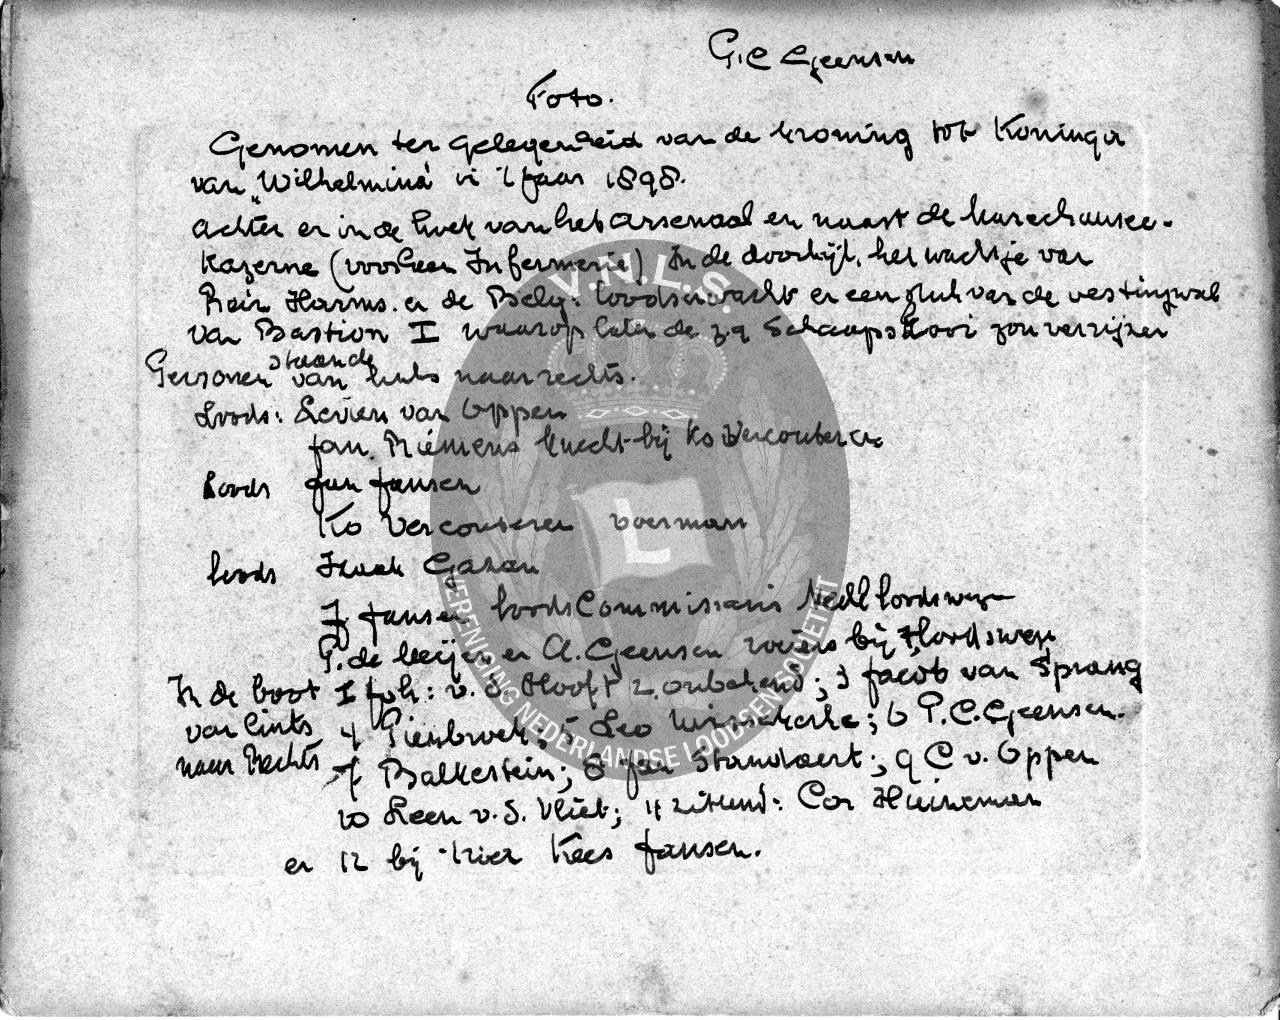 G.C Geensen
Foto.
Genomen ter gelegenheid van de kroning tot Koningin
van "Wilhelmina" in 't jaar 1898.
achter er in de hoek van het Arsenaal en naast de Marechaussee-
Kazerne (voorheen Infermerie) In de doorkijk, het wachtje van
Rein Harms. en de Belg: loodsenwacht en een stuk van de vestingwal
van Bastion I waarop later de z.g Schaapskooi zou verrijzen
Personen staande van links naar rechts.
Loods: Levien van Oppen
Jan. Riemens knecht bij Ko Vercouteren
Loods Jan Jansen
Ko Vercouteren voerman
loods Izaak Gazan
J. Jansen loodsCommissaris Nedl loodswezen
P. de Meijer en A. Geensen roeiers bij 't loodswezen
In de boot 1 Joh: v. d. Hooft 2. onbekend; 3 Jacob van Sprang
van links 4 Pienbroek; 5 Leo Wisse; 6 P.C. Geensen.
naar Rechts 7 Balkestein; 8 Jan Standaert; 9 C v. Oppen
10 Leen v. d. Vliet; 11 zittend: Cor Huineman
en 12 bij Kees Jansen.
V.N.L.S.
L
VERENIGING NEDERLANDSE LOODSEN SOCIETEIT